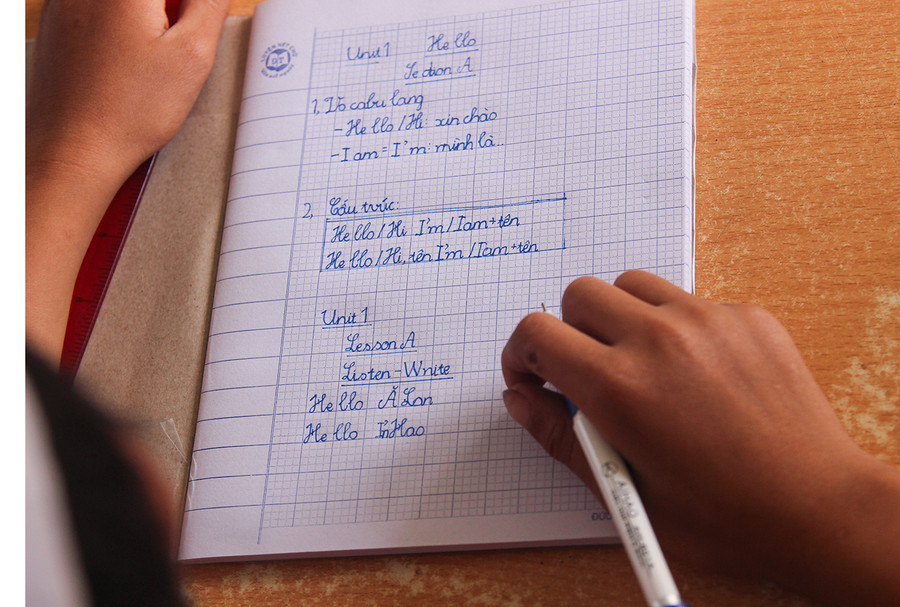 Unit 1 Hello
Section A
1, Vocabulang
- Hello / Hi: xin chào
- I am = I'm: mình là...
2, Cấu trúc:
Hello / Hi I'm / I am + tên
Hello / Hi, tên I'm / I am + tên
Unit 1
Lesson A
Listen - Write
Hello Ă Lan
Hello I'm Hao